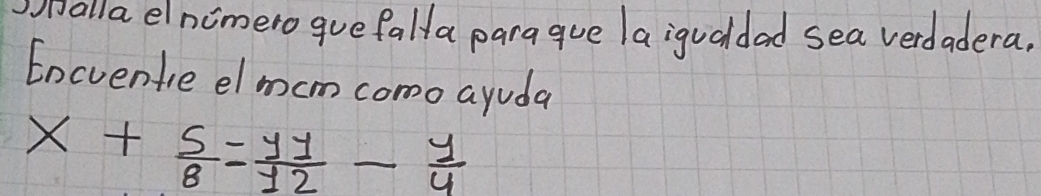 Halla el número que falta para que la igualdad sea verdadera.
Encuentre el mcm como ayuda
x + 5/8 = 11/12 - 1/4